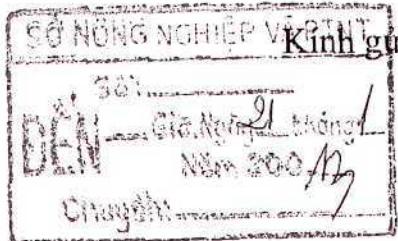 SỞ NÔNG NGHIỆP VÀ PTNT
Kính gử
Số:
ĐẾN
Giờ. Ngày 21 tháng 1
Năm 200
Chuyển: